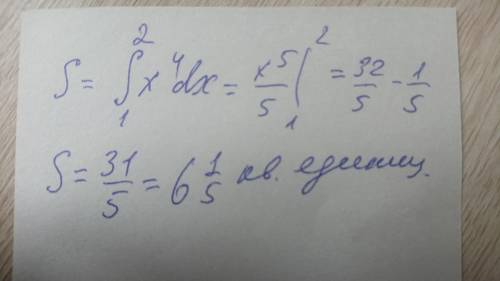 S = ∫₁² x⁴dx = x⁵/5 |₁² = 32/5 - 1/5
S = 31/5 = 6 1/5 кв. единиц.